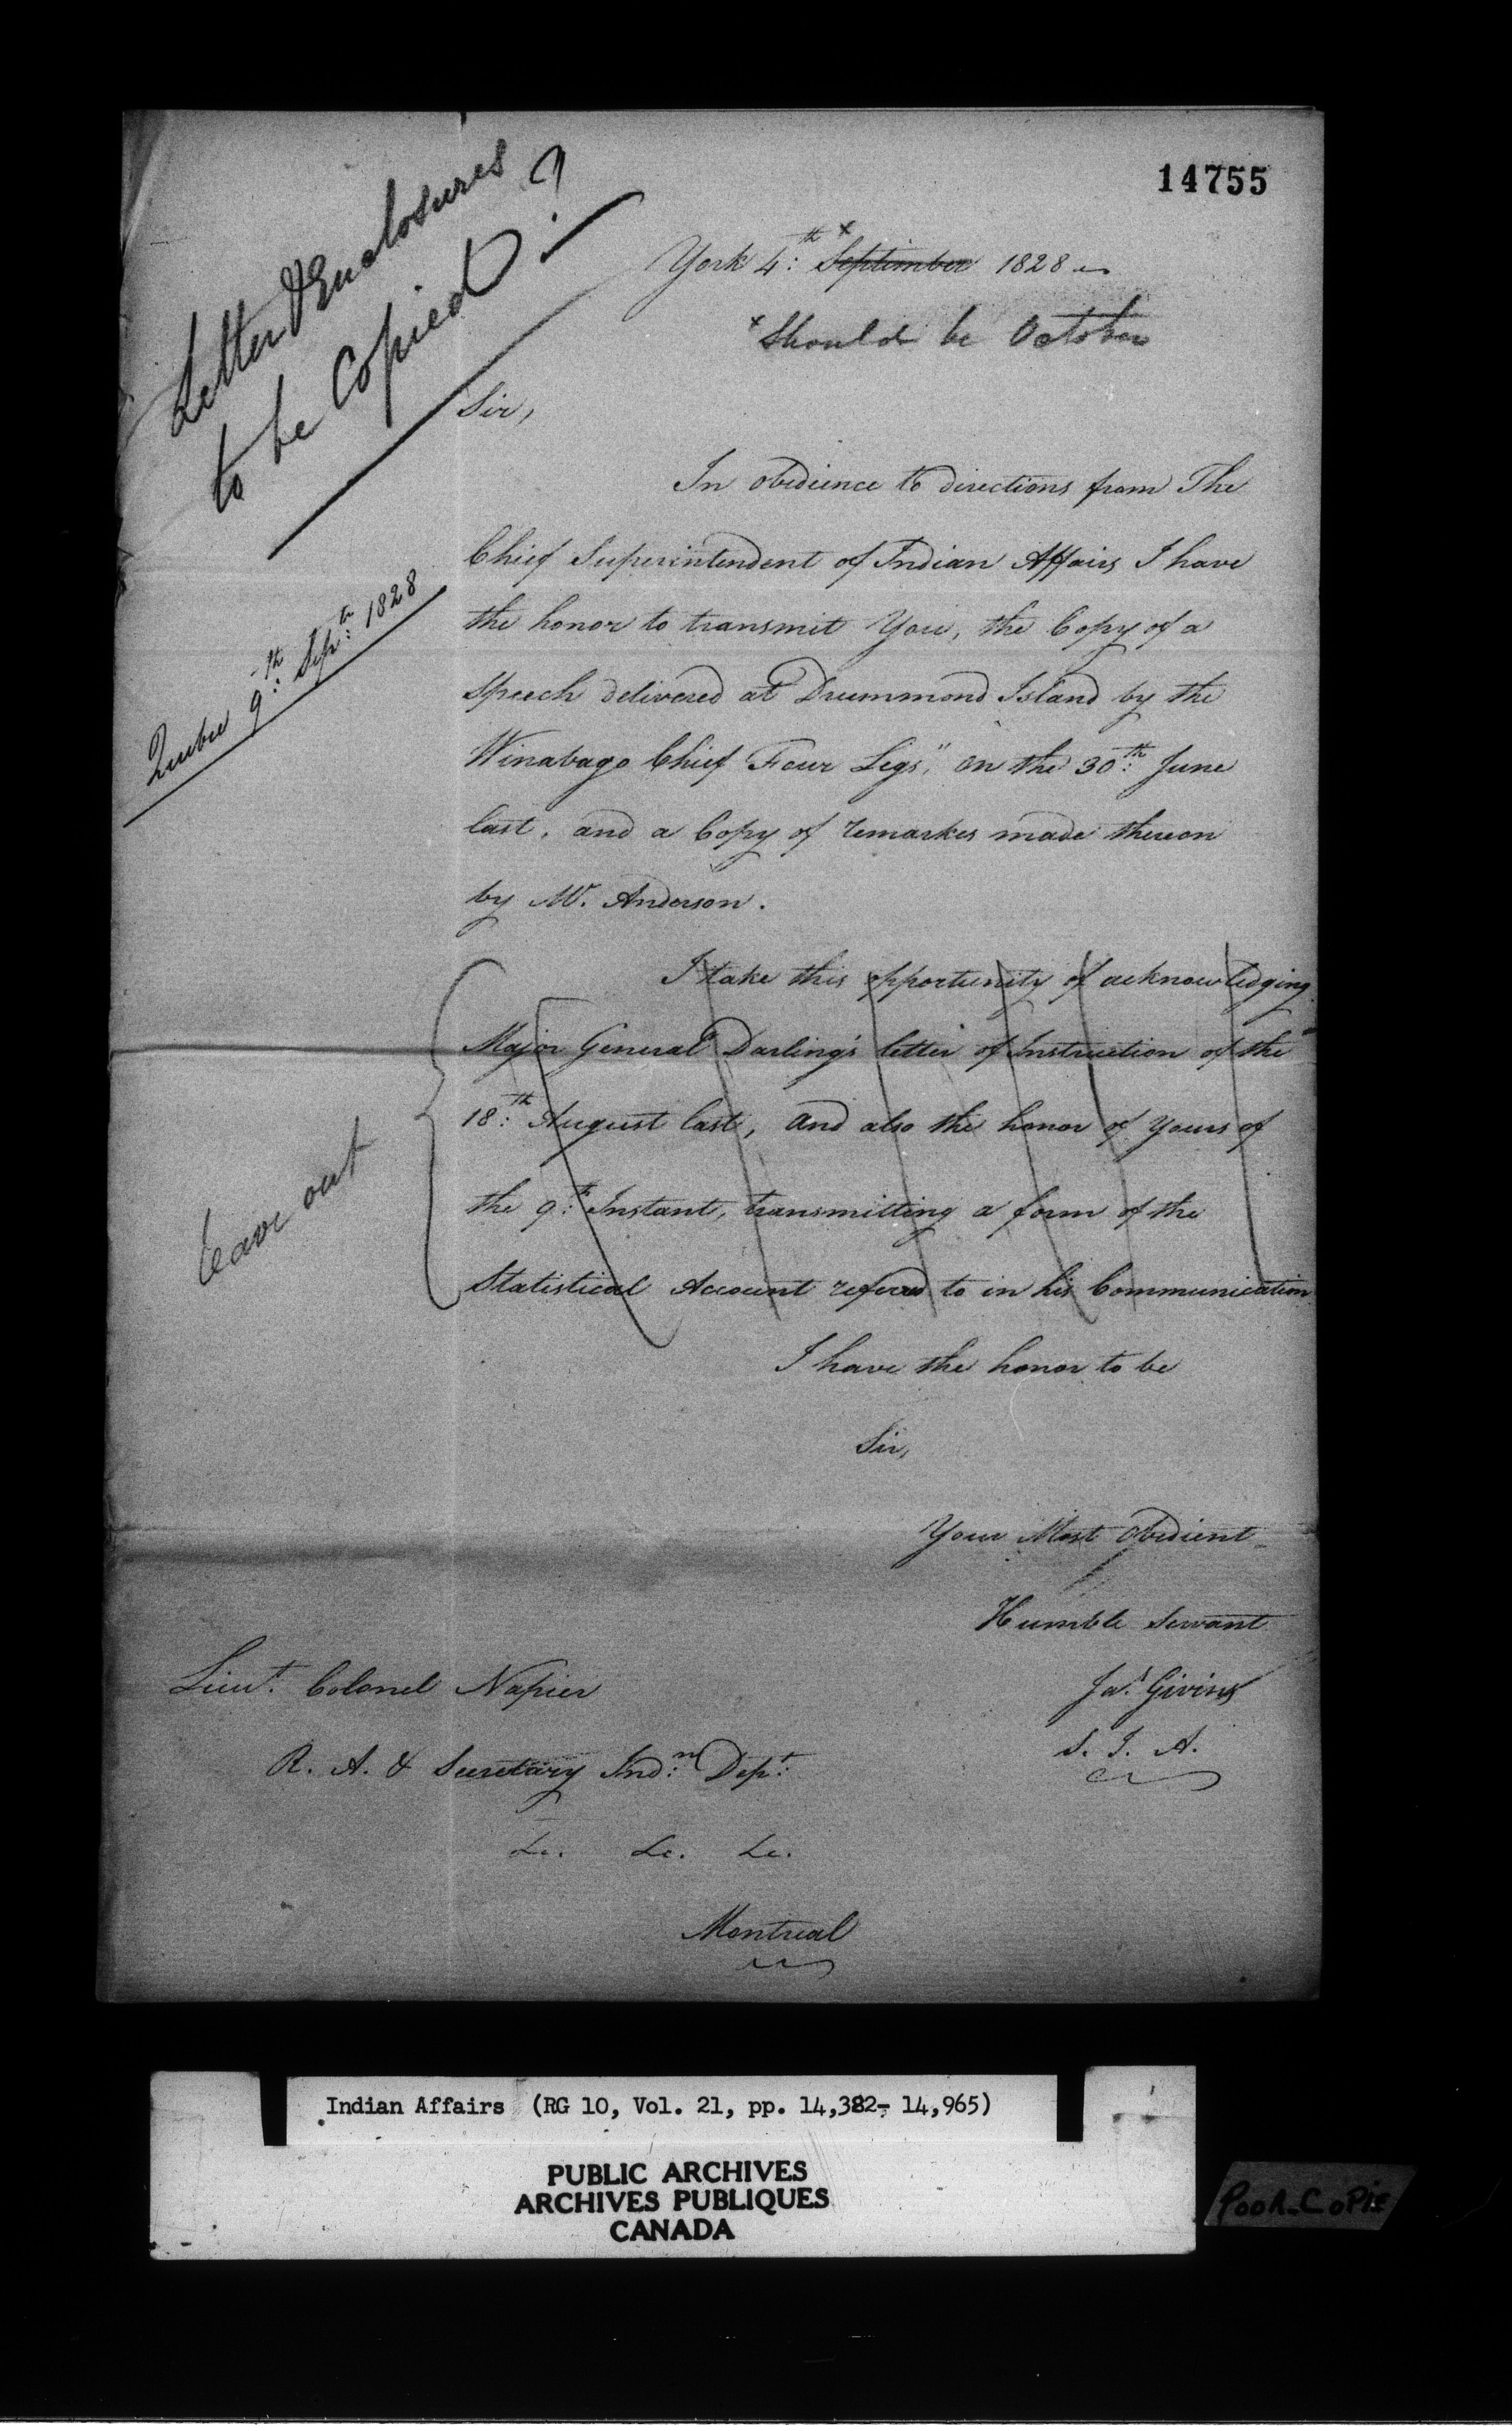 14755
Letter & Enclosures
to be Copied?
York 4:th × September 1828
× Should be October
Sir,
In obedience to directions from The
Chief Superintendent of Indian Affairs I have
the honor to transmit You, the Copy of a
Speech delivered at Drummond Island by the
Winabago Chief "Four Legs," on the 30:th June
last, and a Copy of remarks made thereon
by Mr. Anderson.
9:th Sepr: 1828
I take this opportunity of acknowledging
Major General Darling's letter of Instruction of the
18:th August last, and also the honor of Yours of
the 9:th Instant, transmitting a form of the
Statistical Account refered to in his Communication
leave out
I have the honor to be
Sir,
Your Most Obedient
Humble Servant
Jas. Givins
S. I. A.
Lieut. Colonel Napier
R. A. & Secretary Ind:n Dept:
&c. &c. &c.
Montreal
Indian Affairs (RG 10, Vol. 21, pp. 14,382- 14,965)
PUBLIC ARCHIVES
ARCHIVES PUBLIQUES
CANADA
POOR-COPIE